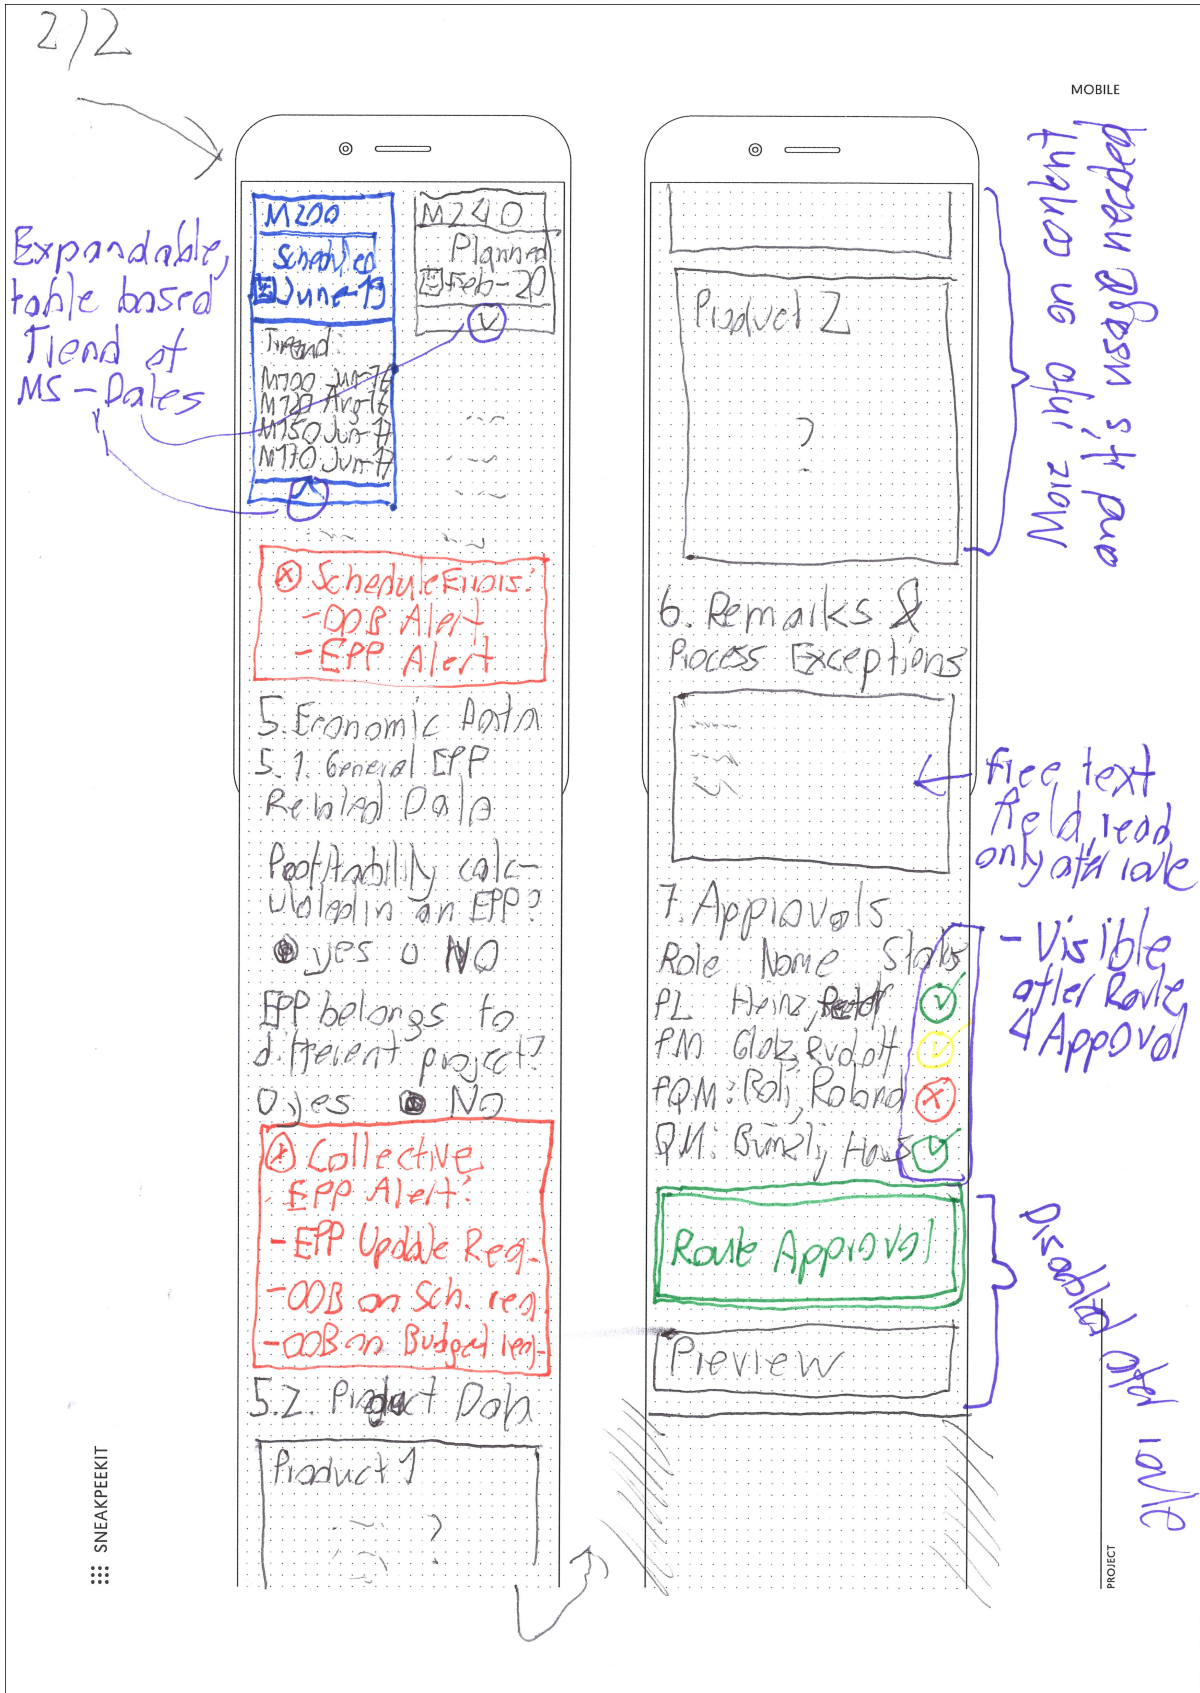 2/2
MOBILE
Expandable,
table based
Trend of
MS-Dates
M200
Scheduled
June-19
Trend
M100 Jun-16
M120 Aug-16
M150 Jun-17
M170 Jun-17
M240
Planned
Feb-20
Schedule Errors:
- OOB Alert
- EPP Alert
5. Economic Data
5.1. General EPP
Related Data
Profitability calc-
ulated in an EPP?
yes NO
EPP belongs to
different project?
yes NO
Collective
EPP Alert:
- EPP Update Req.
- OOB on Sch. req.
- OOB on Budget req.
5.2. Product Data
Product 1
?
Product 2
?
More info on content
and it's neccessity needed
6. Remarks &
Process Exceptions
free text
field, read
only after route
7. Approvals
Role Name Status
PL Heinz,
PM Glotz, Rudolf
PQM: Roland
QM: Bünzli, Hans
- Visible
after Route
4 Approval
Route Approval
Preview
Disabled after route
SNEAKPEEKIT
PROJECT